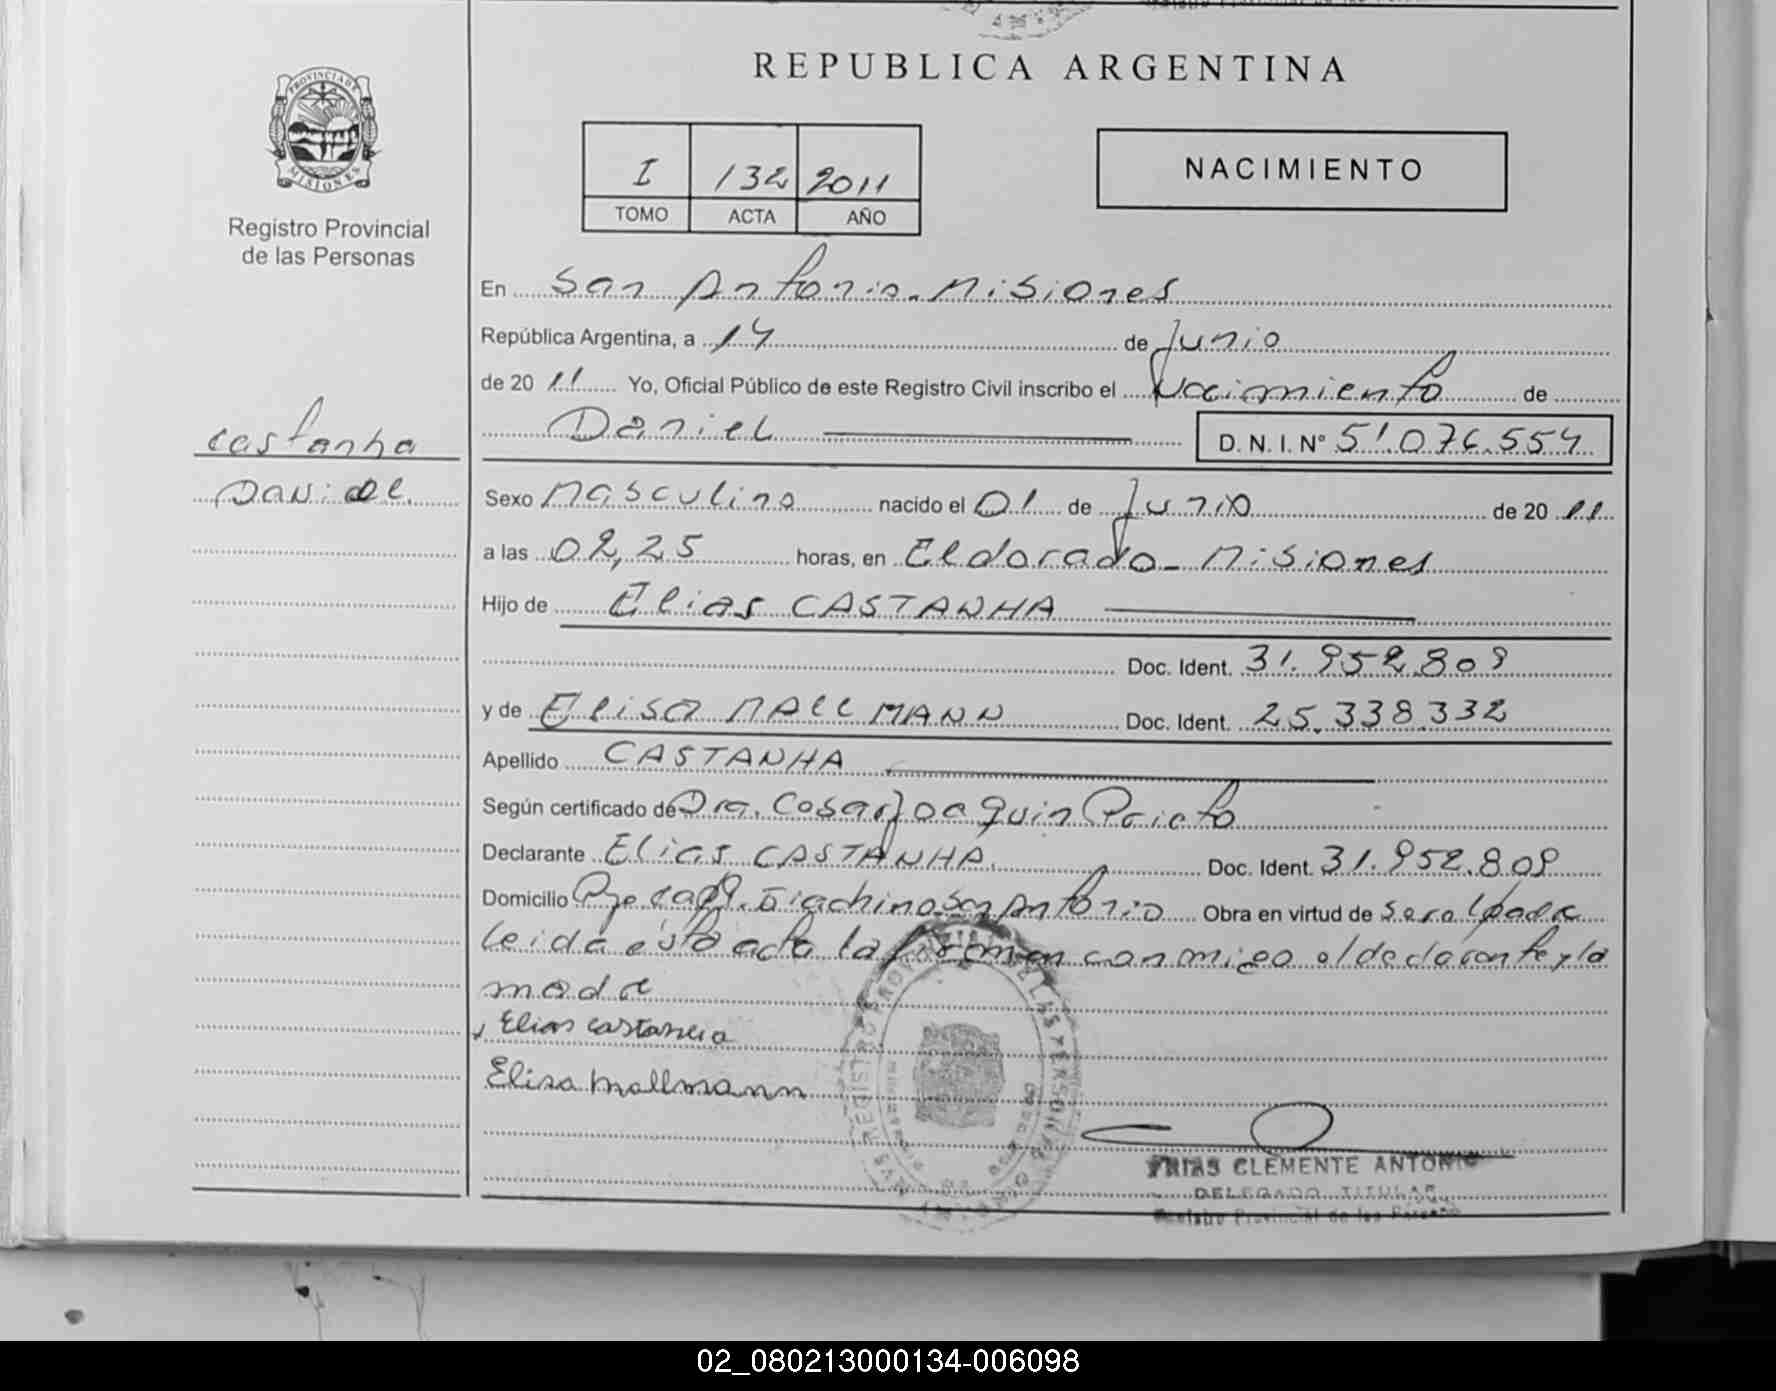 REPUBLICA ARGENTINA
PROVINCIA DE
MISIONES
Registro Provincial
de las Personas
I 132 2011
TOMO ACTA AÑO
NACIMIENTO
En San Antonio - Misiones
República Argentina, a 14 de Junio
de 2011 Yo, Oficial Público de este Registro Civil inscribo el Nacimiento de
Daniel D. N. I. Nº 51.076.554
castanha
Daniel
Sexo Masculino nacido el 01 de Junio de 2011
a las 02,25 horas, en Eldorado - Misiones
Hijo de Elias CASTANHA
Doc. Ident. 31.952.809
y de Elisa MALLMANN Doc. Ident. 25.338.332
Apellido CASTANHA
Según certificado de Dra. Cesar Joaquin Prieto
Declarante Elias CASTANHA. Doc. Ident. 31.952.809
Domicilio Pje Cap. Giachino San Antonio Obra en virtud de ser el padre
leida esta acta la firman con migo el declarante y la
madre
Elias castanha
Elisa mallmann
FRIAS CLEMENTE ANTONIO
DELEGADO TITULAR
Registro Provincial de las Personas
02_080213000134-006098